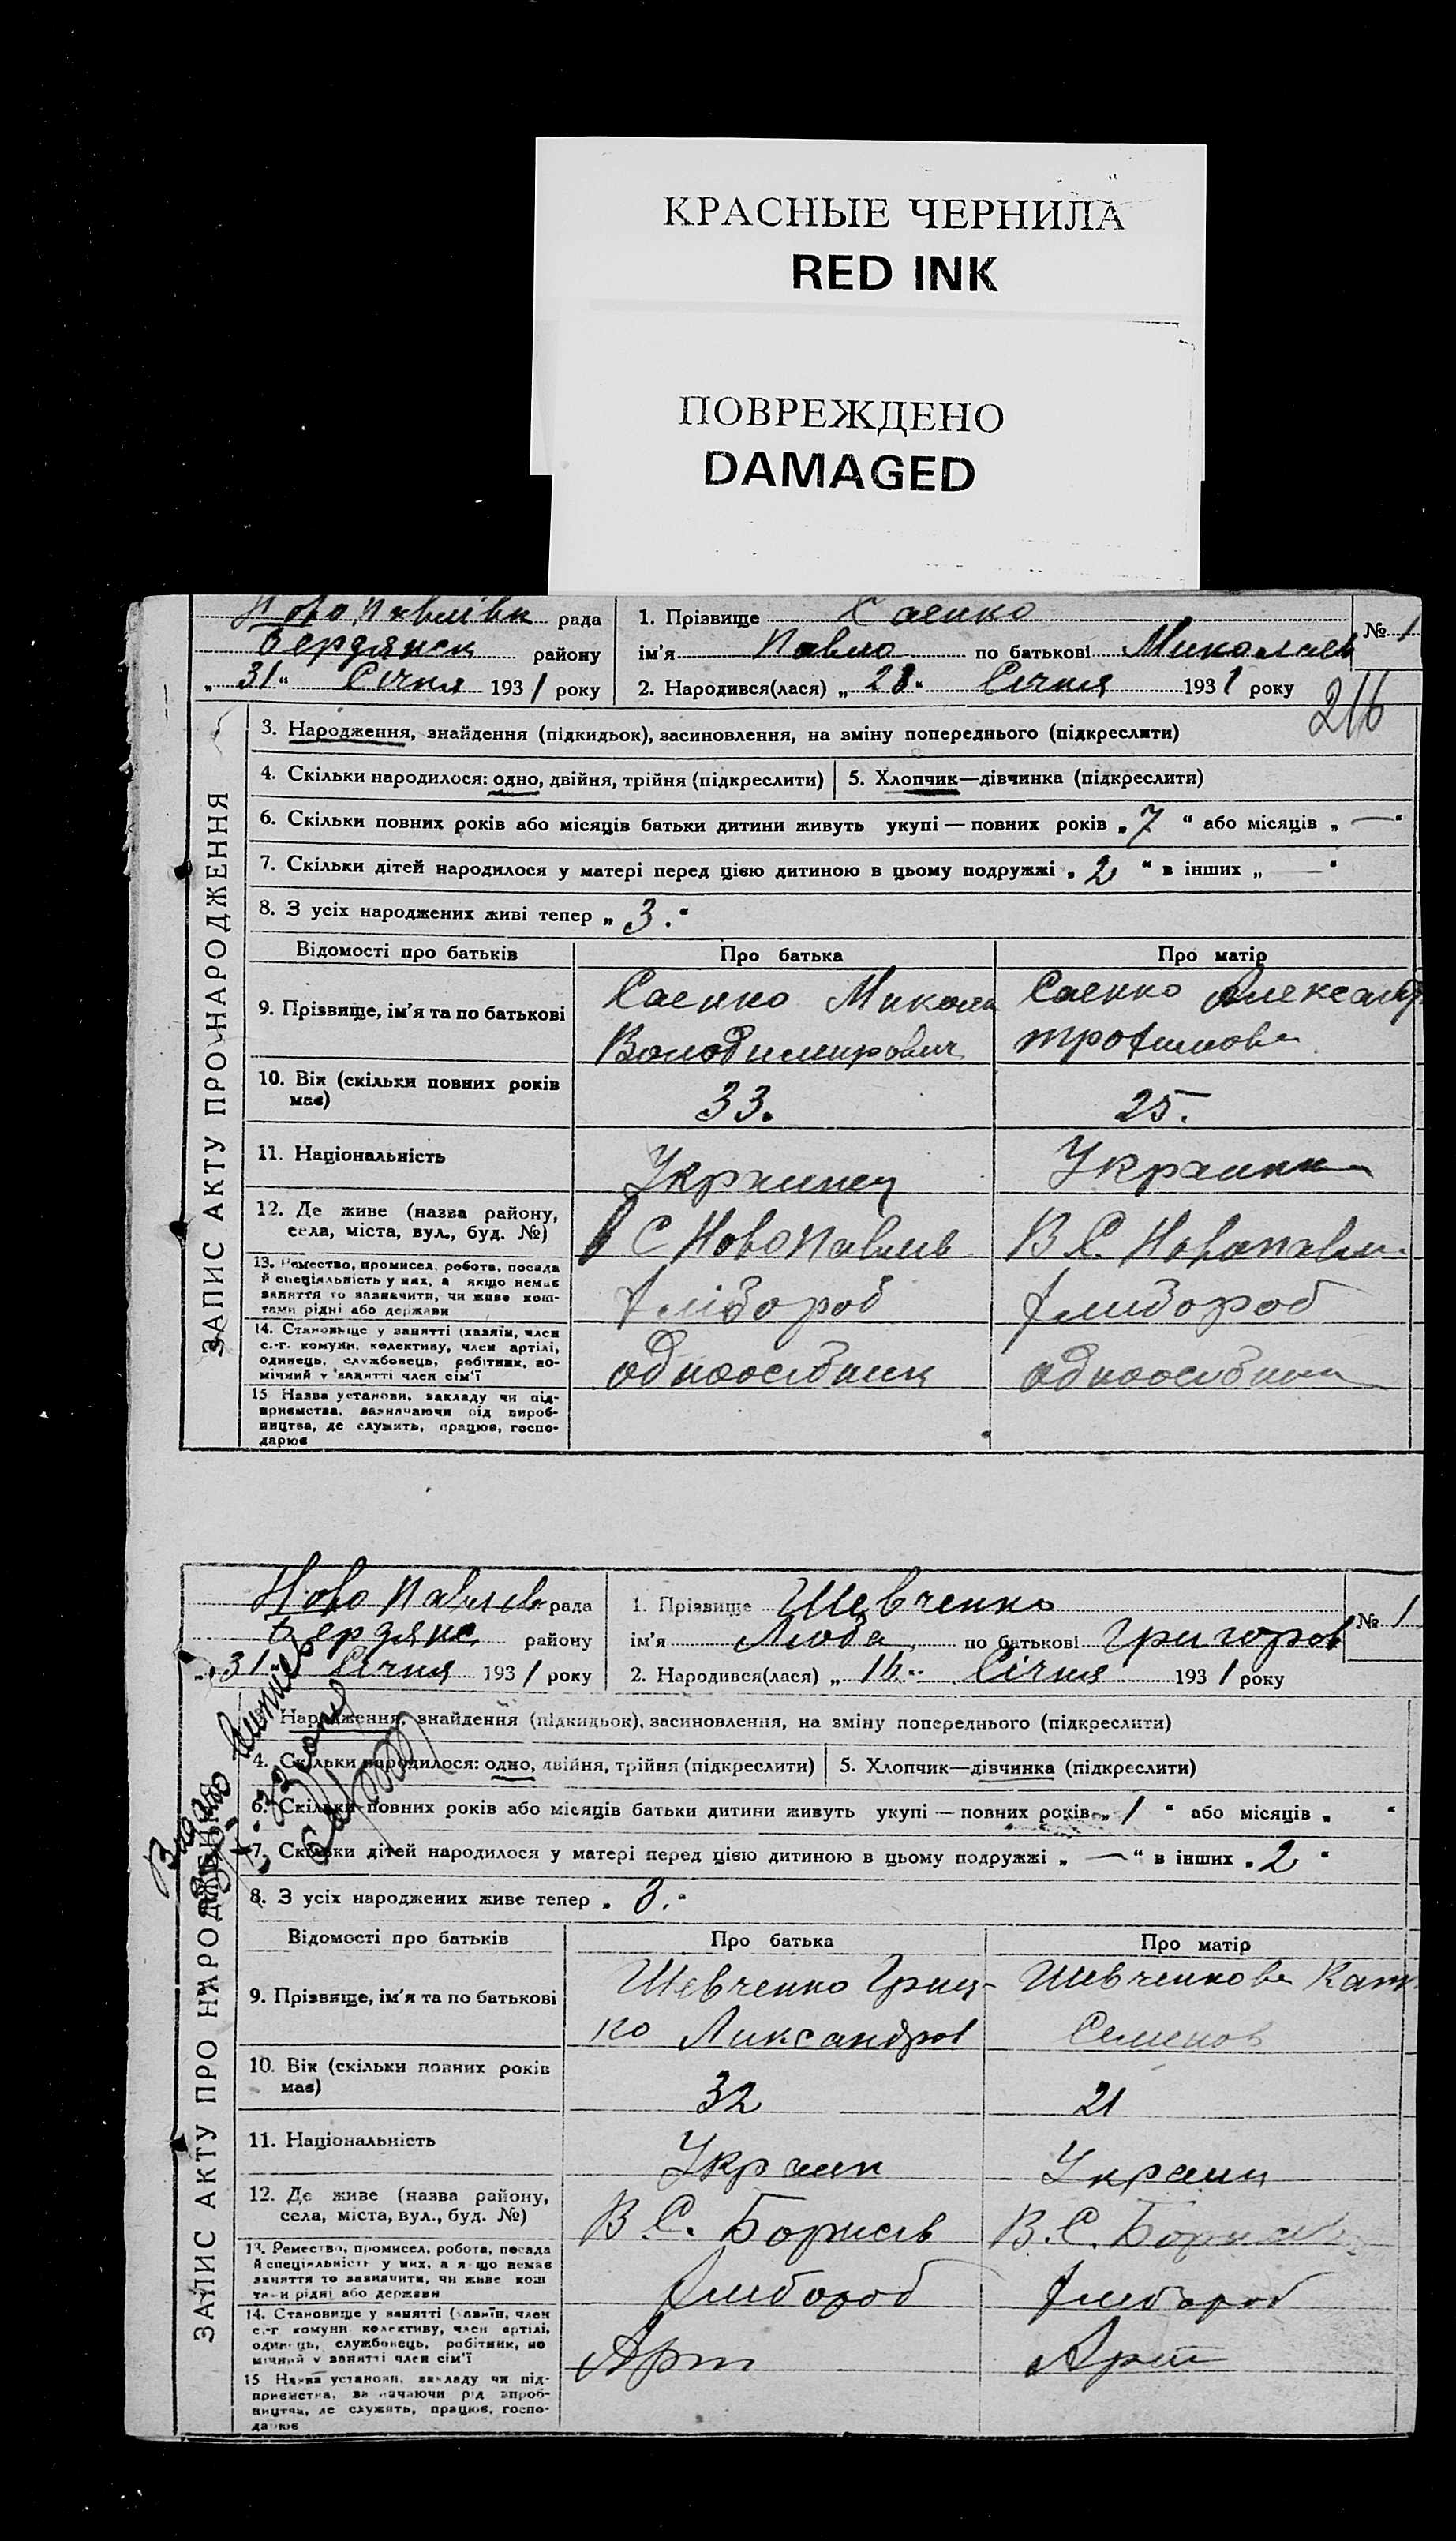 КРАСНЫЕ ЧЕРНИЛА
RED INK
ПОВРЕЖДЕНО
DAMAGED
Ново Павлівк рада
Бердянск району
„31“ Січня 1931 року
1. Прізвище Саенко
ім'я Павло по батькові Миколаєв
№ 1
2. Народився(лася) „28“ Січня 1931 року
216
ЗАПИС АКТУ ПРО НАРОДЖЕННЯ
3. Народження, знайдення (підкидьок), засиновлення, на зміну попереднього (підкреслити)
4. Скільки народилося: одно, двійня, трійня (підкреслити)
5. Хлопчик—дівчинка (підкреслити)
6. Скільки повних років або місяців батьки дитини живуть укупі — повних років „7“ або місяців „—“
7. Скільки дітей народилося у матері перед цією дитиною в цьому подружжі „2“ в інших „—“
8. З усіх народжених живі тепер „3.“
Відомості про батьків
Про батька
Про матір
9. Прізвище, ім'я та по батькові
Саенко Микола
Володимирович
Саенко Александр
трофимова
10. Вік (скільки повних років має)
33.
25.
11. Національність
Украинец
Украинка
12. Де живе (назва району, села, міста, вул., буд. №)
В С Новопавлів
В С. Новопавли.
13. Ремество, промисел, робота, посада
й спеціяльність у них, а якщо немає
заняття то зазначити, чи живе кош-
тами рідні або держави
хлібороб
хлибороб
14. Становище у занятті (хазяїн, член
с.-г. комуни, колективу, член артілі,
одинець, службовець, робітник, по-
мічний у занятті член сім'ї
одноосібник
одноосібник
15 Назва установи, закладу чи під-
приємства, зазначаючи рід вироб-
ництва, де служить, працює, госпо-
дарює
Ново Павлів рада
Бердянс району
„31 Січня 1931 року
1. Прізвище Шевченко
ім'я Люба по батькові Григоров
№ 1
2. Народився(лася) „16“ Січня 1931 року
ЗАПИС АКТУ ПРО НАРОДЖЕННЯ
Видано
Народження, знайдення (підкидьок), засиновлення, на зміну попереднього (підкреслити)
4. Скільки народилося: одно, двійня, трійня (підкреслити)
5. Хлопчик—дівчинка (підкреслити)
6. Скільки повних років або місяців батьки дитини живуть укупі — повних років „1“ або місяців „ “
7. Скільки дітей народилося у матері перед цією дитиною в цьому подружжі „—“ в інших „2“
8. З усіх народжених живе тепер „3.“
Відомості про батьків
Про батька
Про матір
9. Прізвище, ім'я та по батькові
Шевченко Гриц-
ко Ликсандров
Шевченкова Кат.
Семенов
10. Вік (скільки повних років має)
32
21
11. Національність
Украин
Украин
12. Де живе (назва району, села, міста, вул., буд. №)
В С. Борисів
В. С. Борисів
13. Ремество, промисел, робота, посада
й спеціяльність у них, а якщо немає
заняття то зазначити, чи живе кош
тами рідні або держави
хлибороб
хлибороб
14. Становище у занятті (хазяїн, член
с.-г комуни колективу, член артілі,
одинець, службовець, робітник, по
мічний у занятті член сім'ї
Арт
Арт
15 Назва установи, закладу чи під-
приємства, зазначаючи рід вироб-
ництва, де служить, працює, госпо-
дарює